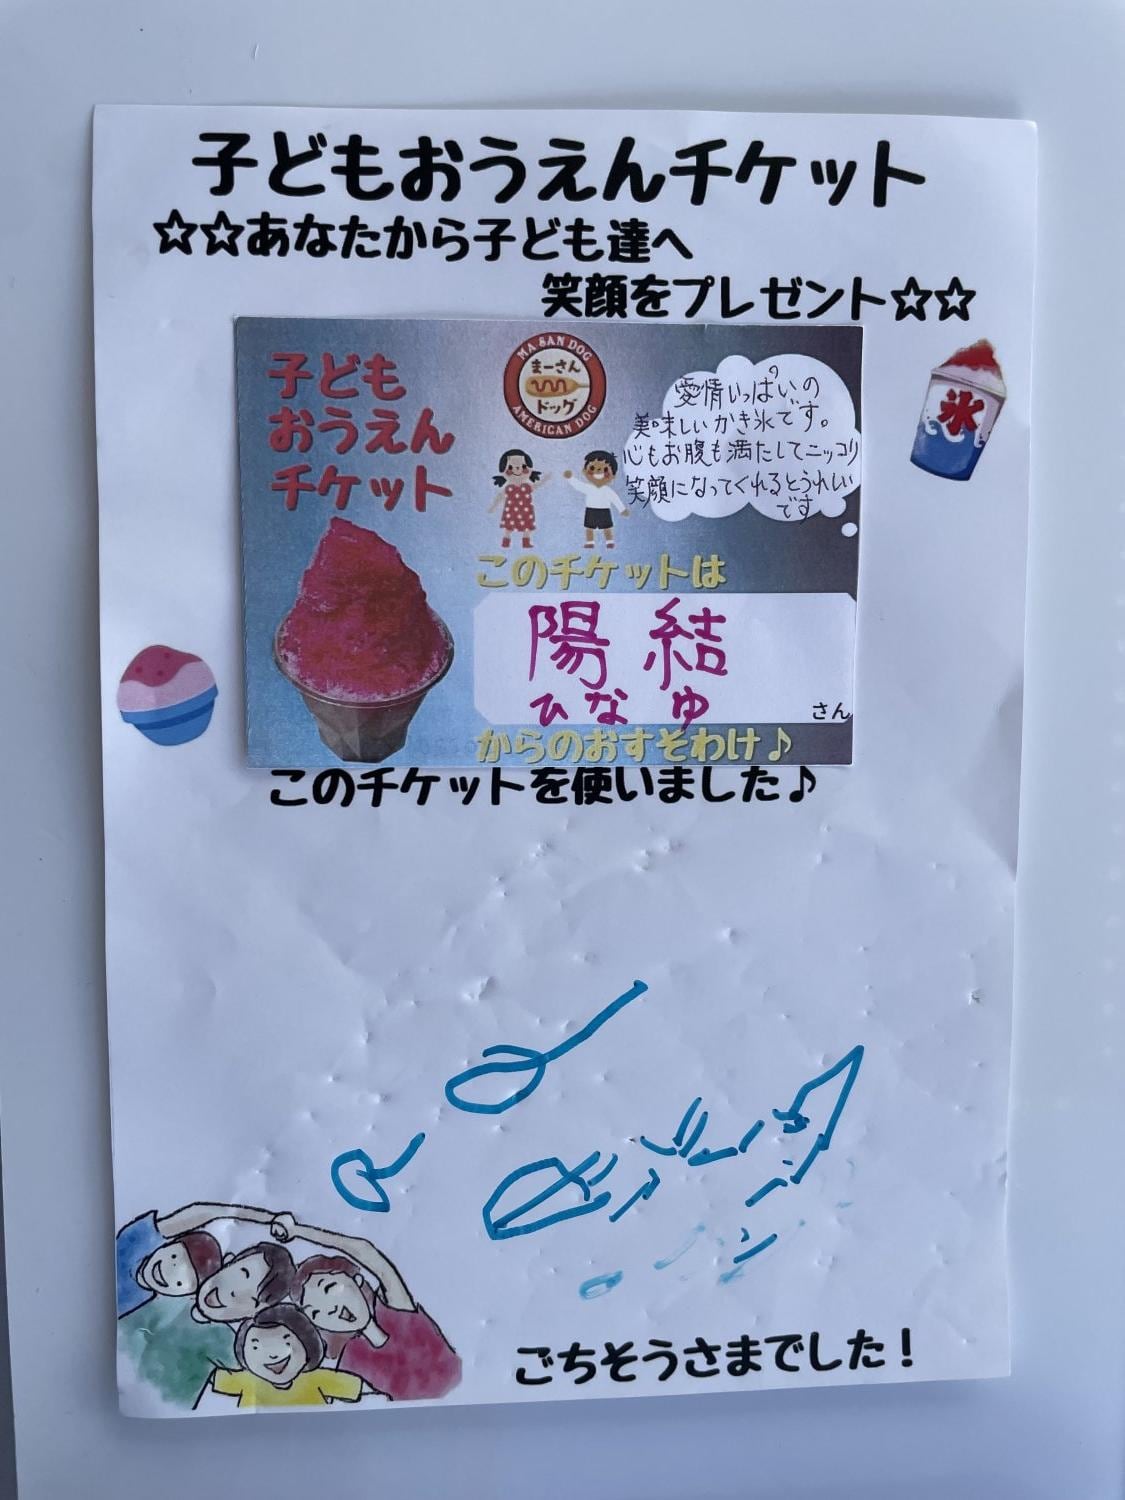 子どもおうえんチケット
☆☆あなたから子ども達へ
笑顔をプレゼント☆☆
子ども
おうえん
チケット
MA SAN DOG
まーさん
ドッグ
AMERICAN DOG
愛情いっぱいの
美味しいかき氷です。
心もお腹も満たしてニッコリ
笑顔になってくれるとうれしい
です
氷
このチケットは
陽結
ひなゆ
さん
からのおすそわけ♪
このチケットを使いました♪
ごちそうさまでした!